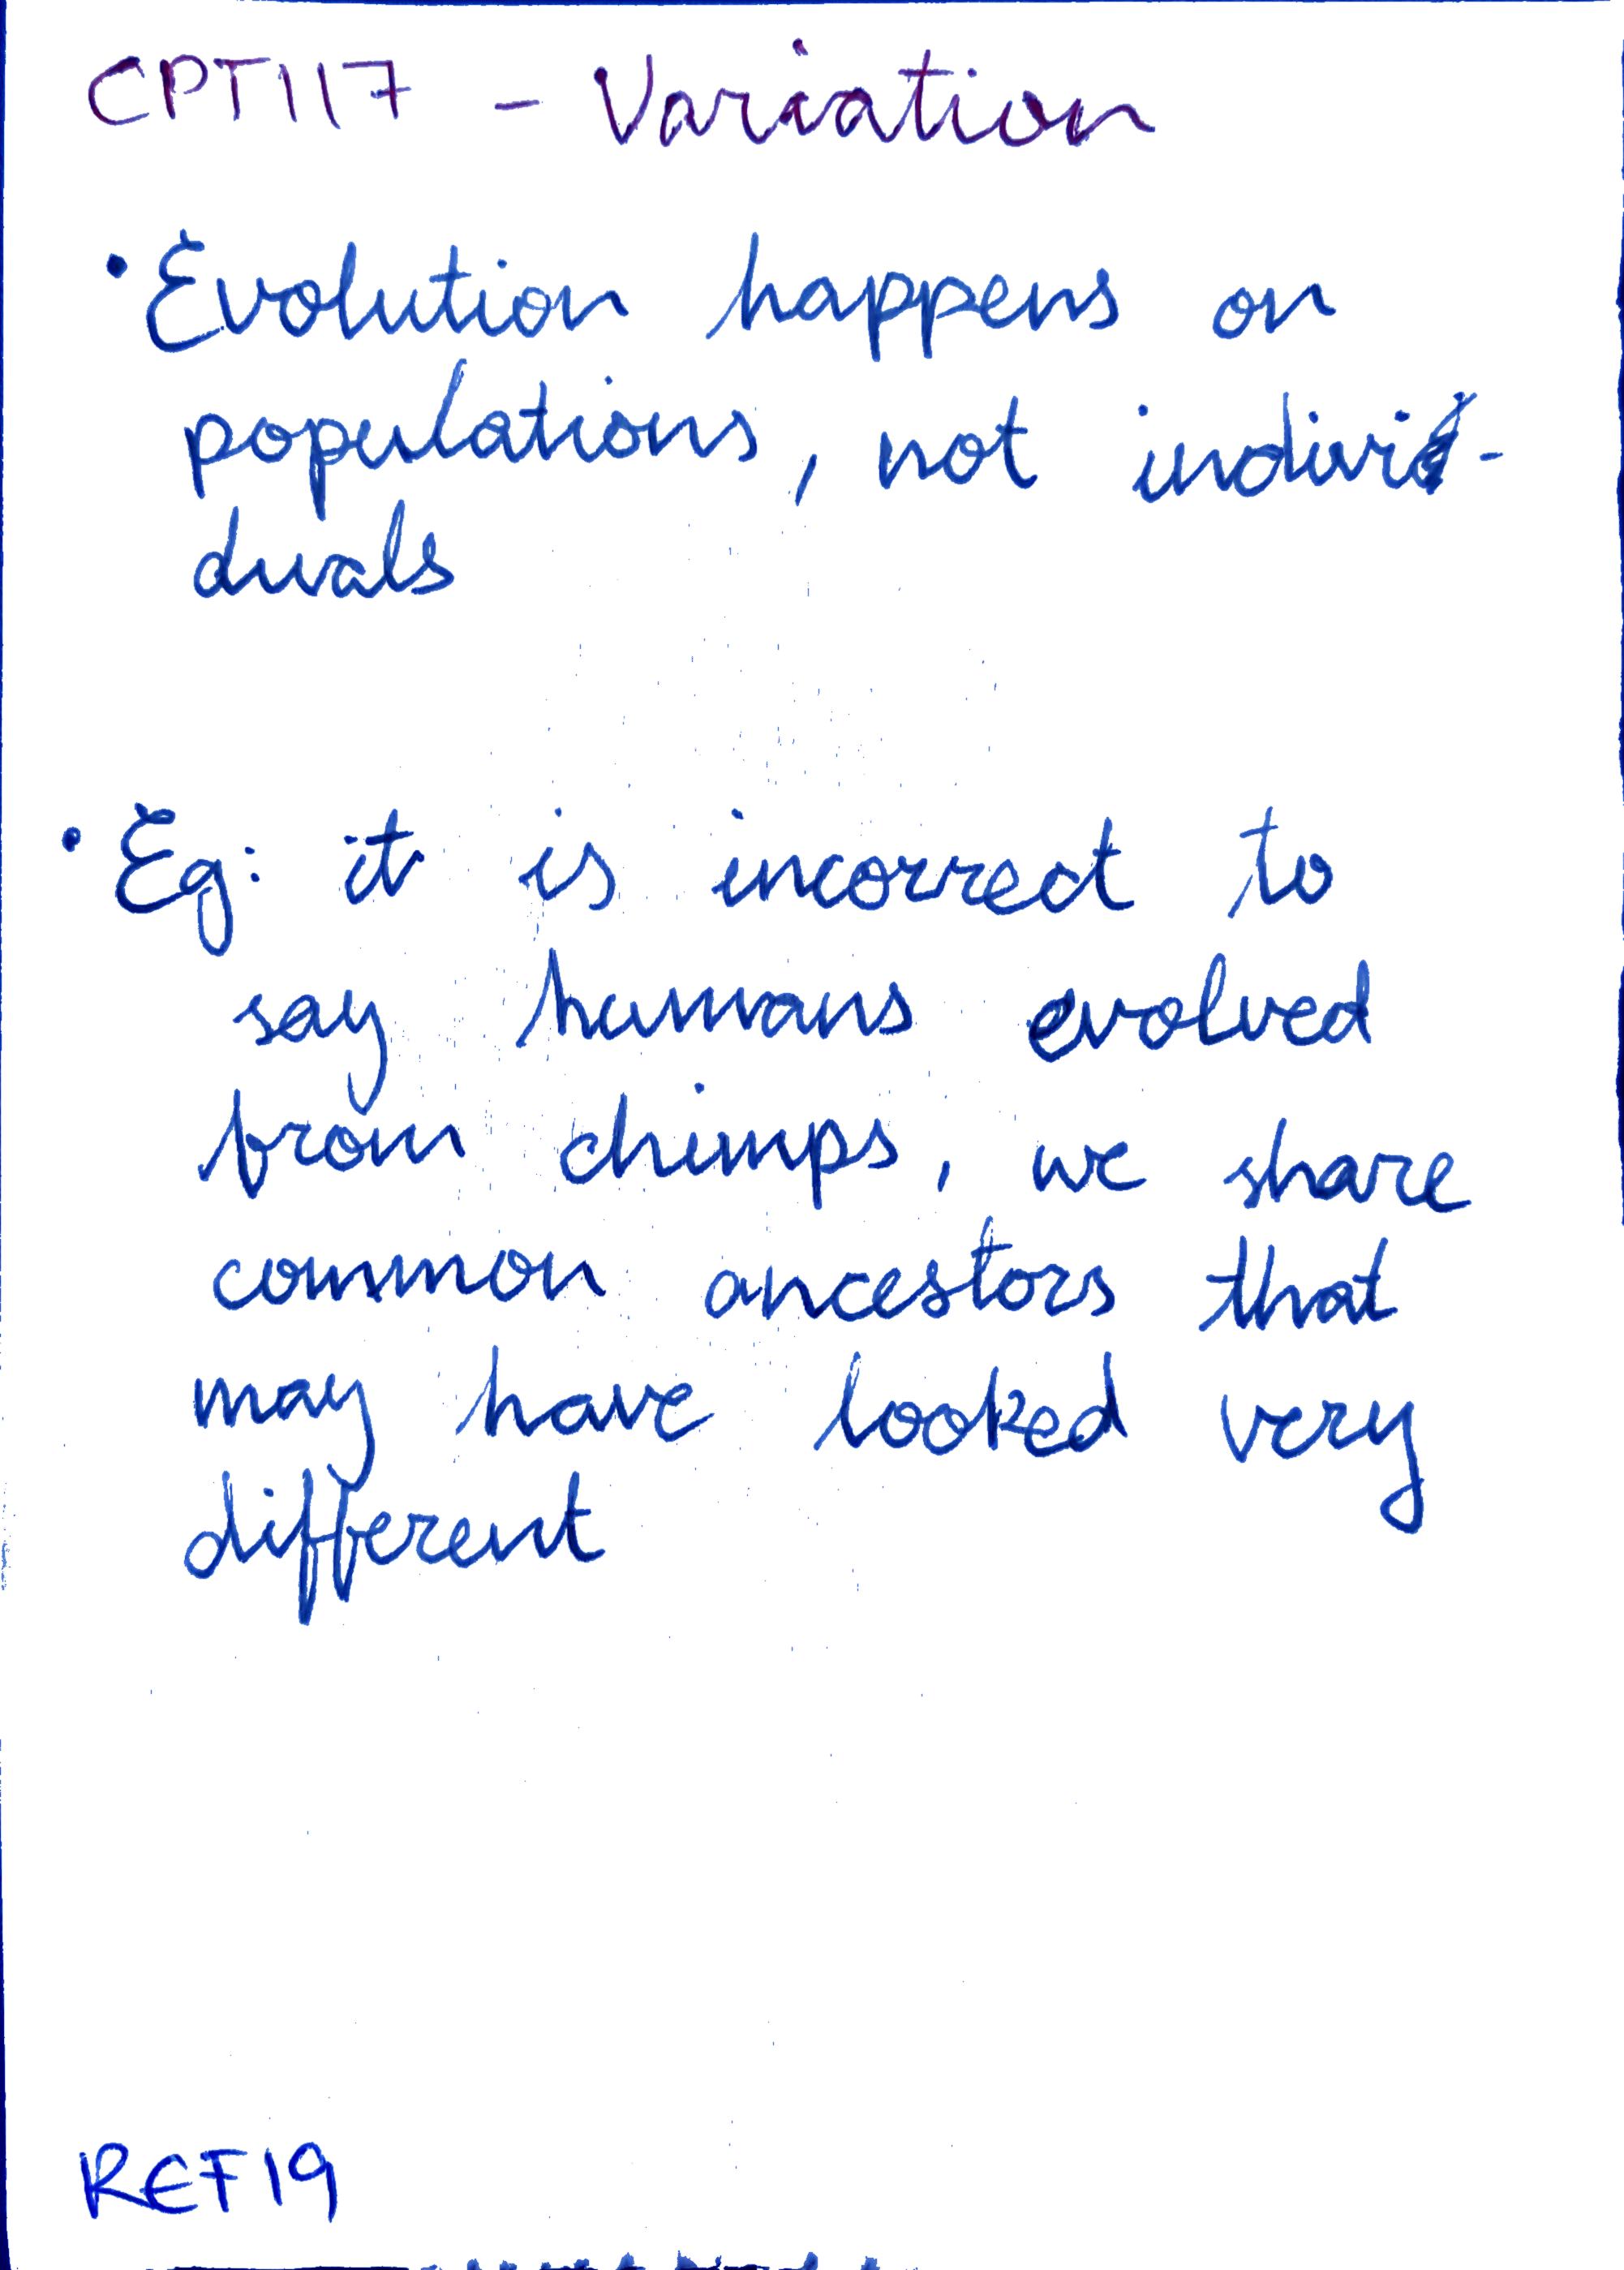 CPT117 - Variation
• Evolution happens on
populations, not indivi-
duals
• Eg: it is incorrect to
say humans evolved
from chimps, we share
common ancestors that
may have looked very
different
REF19